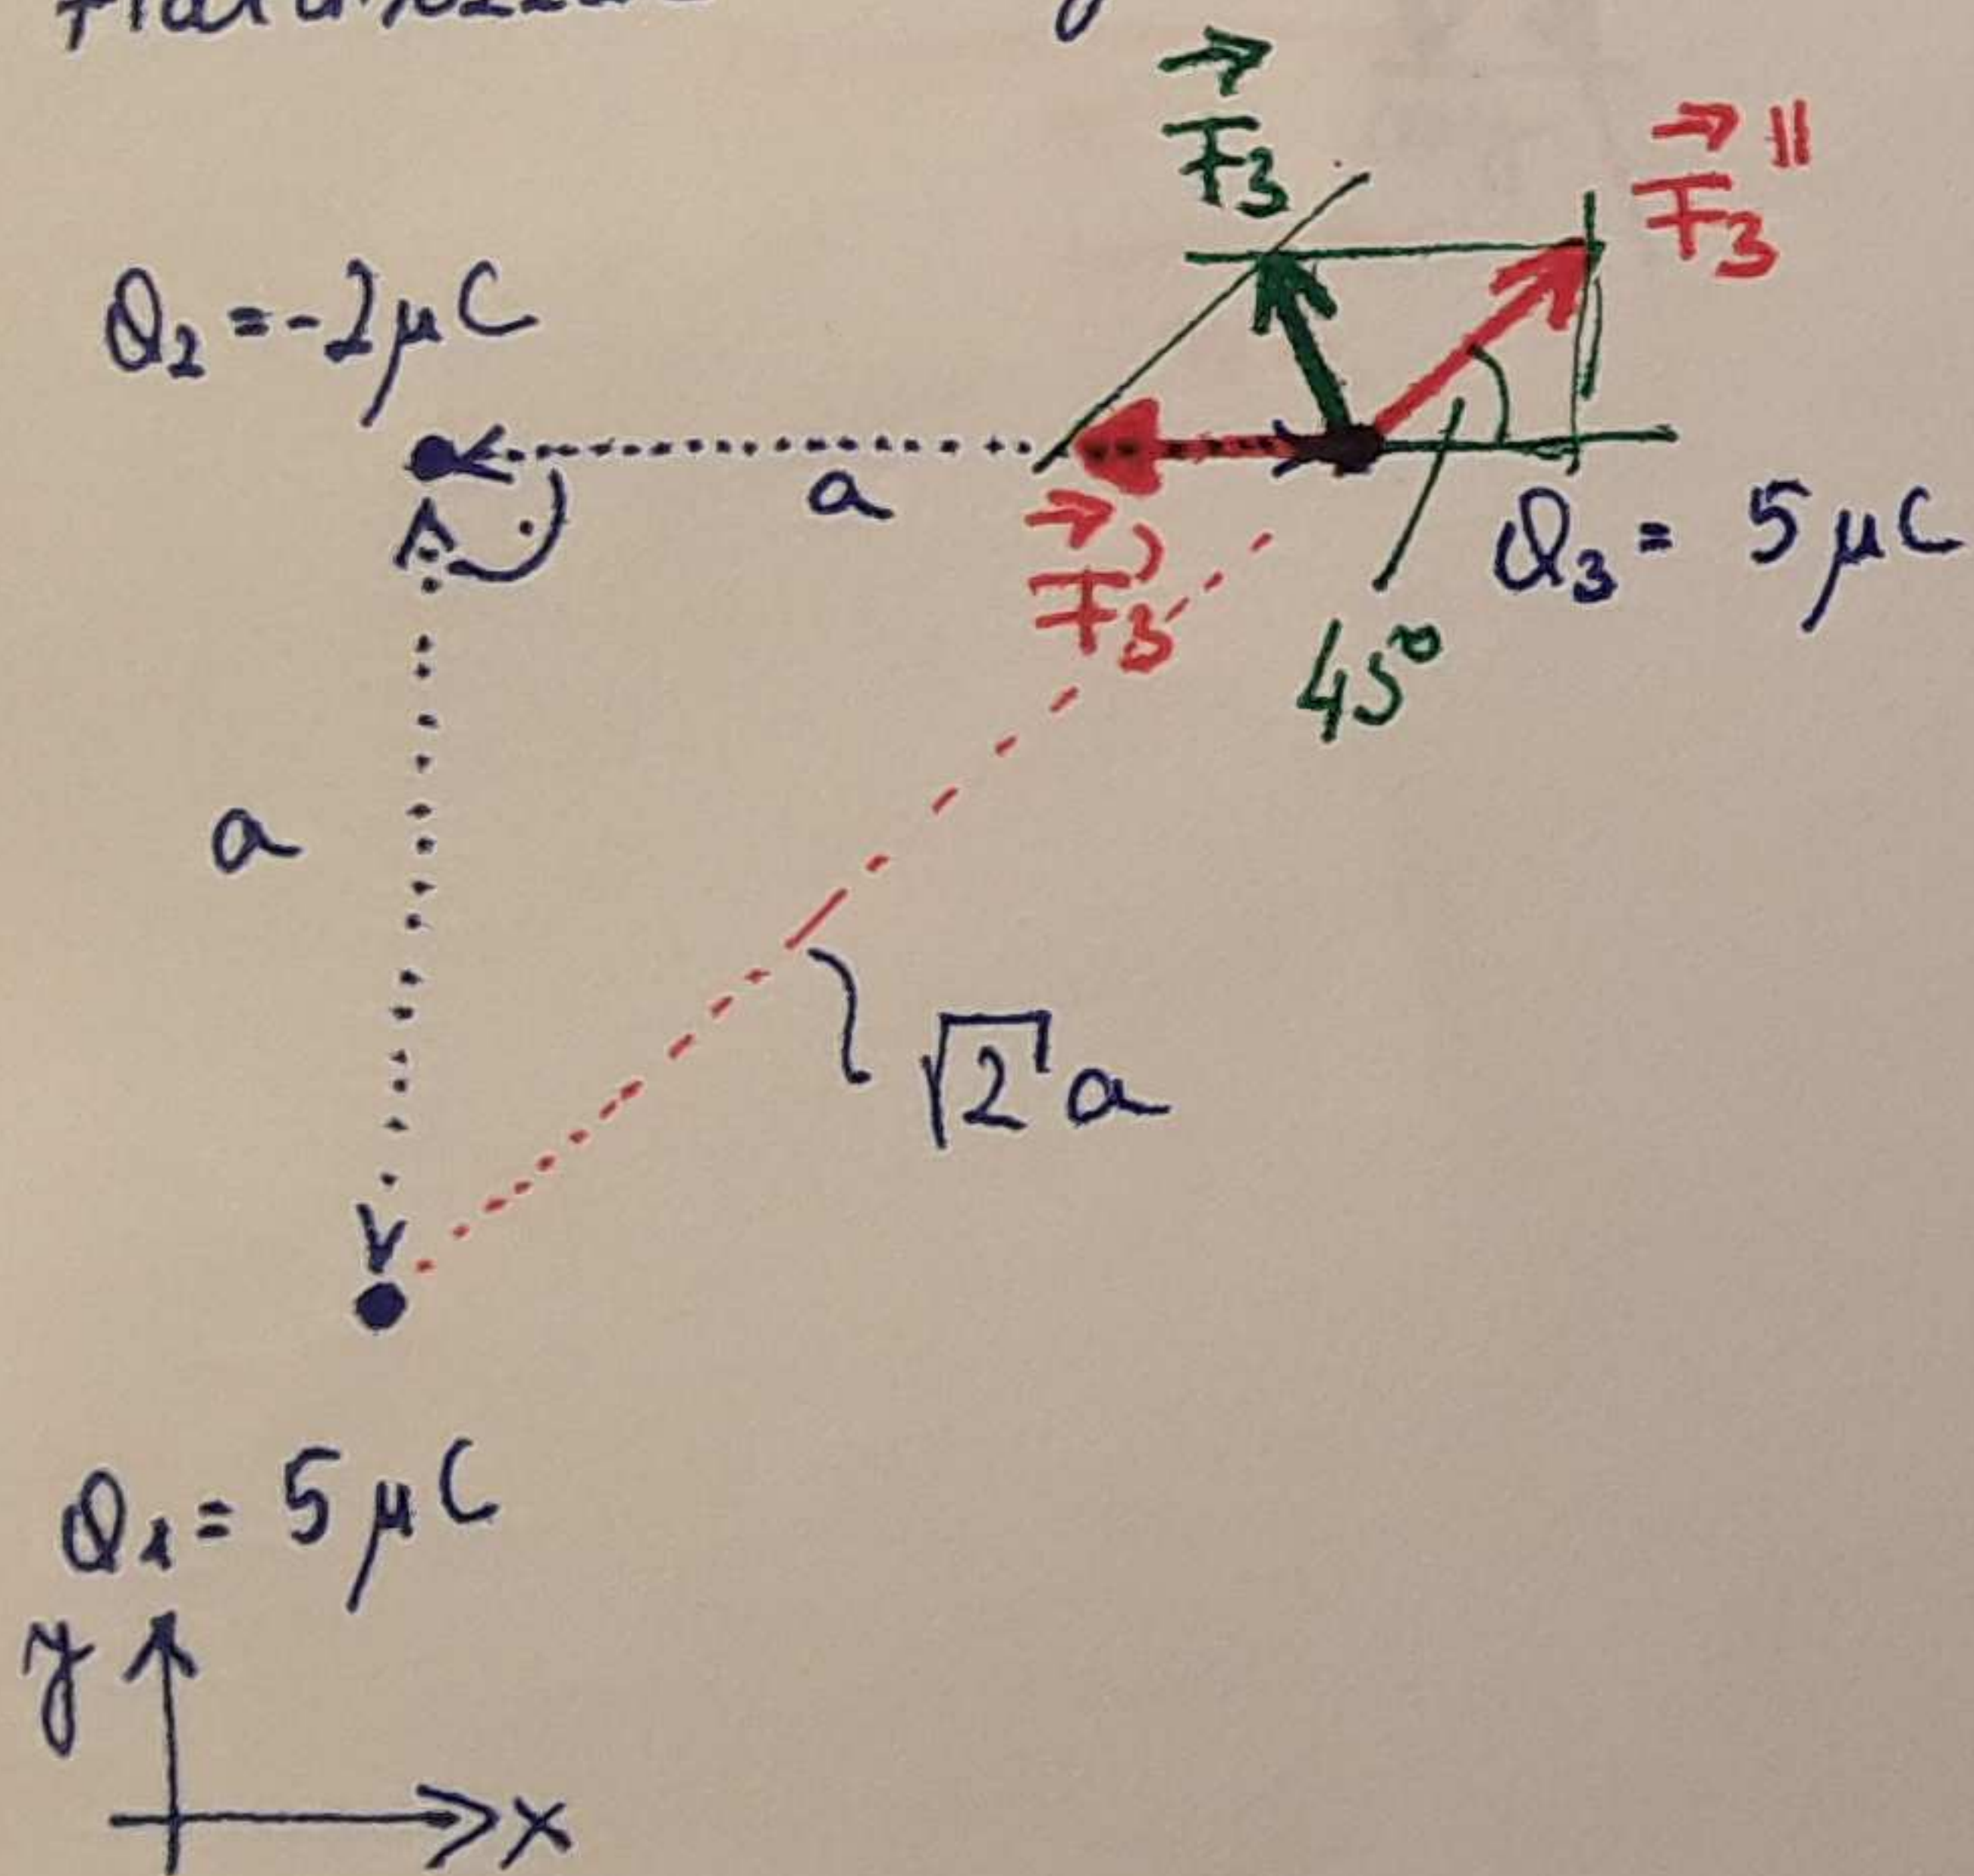 F₃
F₃ ||
Q₂ = -2μC
a
Q₃ = 5μC
F₃'
45°
a
√2 a
Q₁ = 5μC
y
x